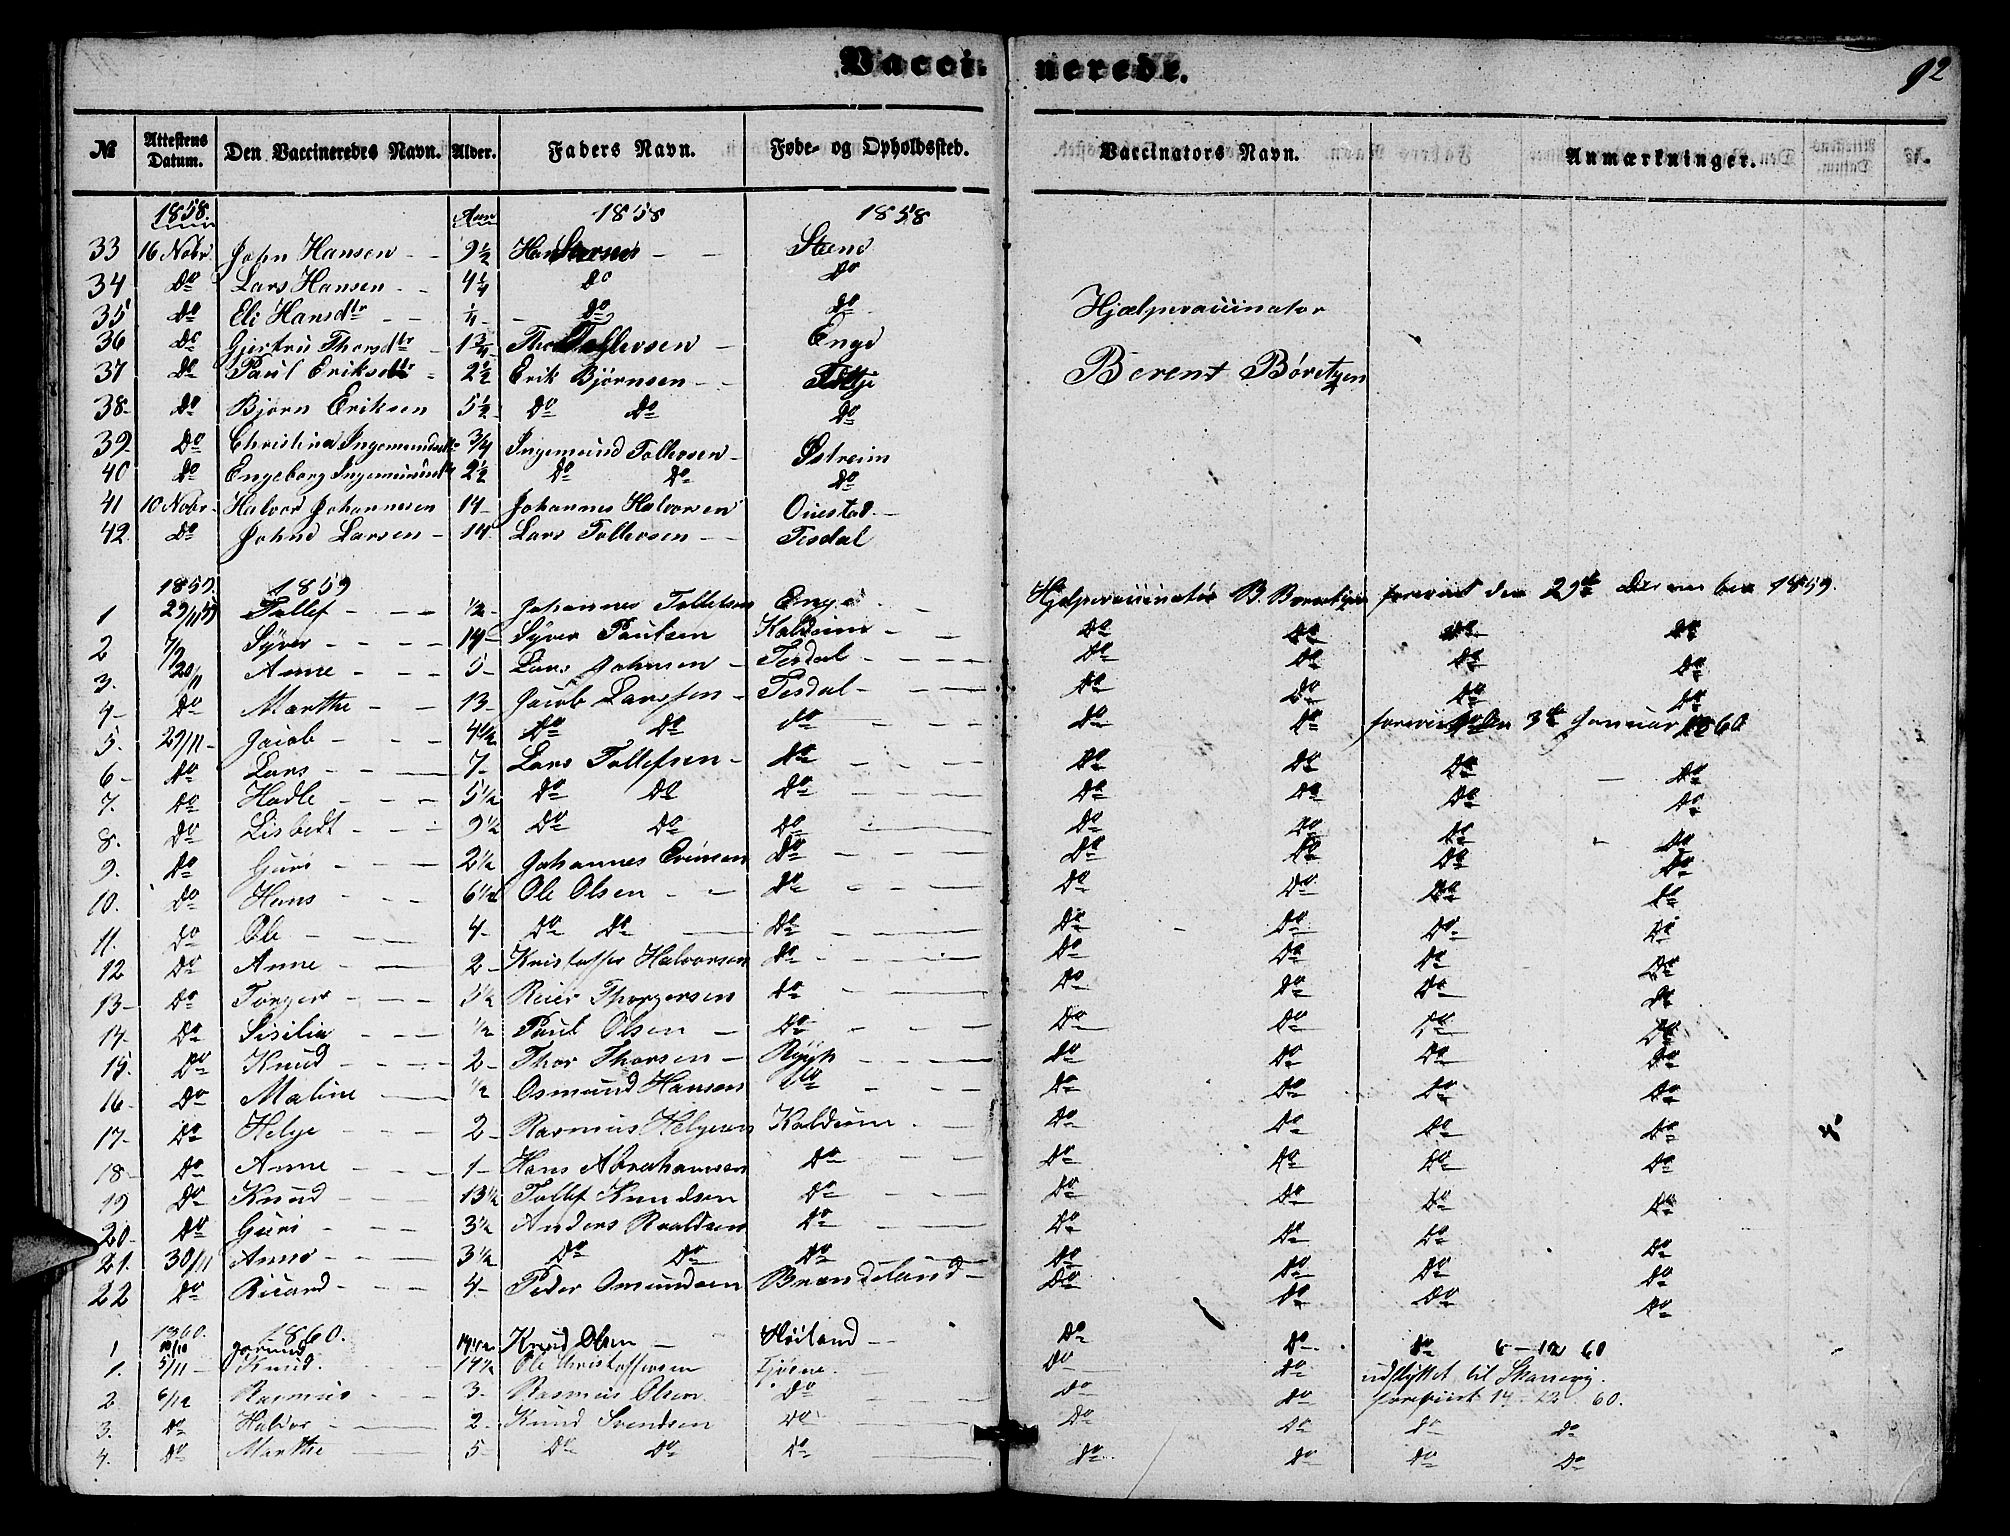 Vacci- nerede. 92
№ Attestens Datum. Den Vaccineredes Navn. Alder. Faders Navn. Føde- og Opholdssted. Vaccinators Navn. Anmærkninger.
1858. Aar 1858 1858
33 16 Novbr John Hansen 9½ Steene
34 Do Lars Hansen 4¼ Do Do
35 Do Eli Hansdtr ¼ Do Do Hjælpevaccinator
36 Do Gjertru Thorsdtr 1¾ Tollevsen Enge
37 Do Paul Eriks 2½ Erik Bjørnsen Berent Børetzen
38 Do Bjørn Eriksen 5½ Do Do Do
39 Do Christina Ingemundsdtr 3/4 Ingemund Tollevsen Østreim
40 Do Engeborg 2½ Do Do Do
41 10 Novbr Halvor Johannesen 14 Johannes Halvorsen
42 Do Larsen 14 Lars Tollevsen Tesdal
1859. 1859
1 29/11 59 Tollef ½ Johannes Tollefsen Enge Hjelpevaccinatør B. den 29de December 1859.
2 Syver 14 Syver Paulsen Kaldeim Do Do Do Do
3. 20/11 Anne 5 Lars Johnsen Tesdal Do Do Do Do
4 Do Marthe 13 Jacob Larssen Tesdal Do Do Do Do
5. 29/11 Jacob 4½ Do Do Do Do Do den 3de Januar 1860
6 Do Lars 7 Lars Tollefsen Do Do Do Do Do
7. Do Hadle 5½ Do Do Do Do Do Do Do
8. Do Lisbedt 9½ Do Do Do Do Do Do Do
9. Do Guri 2½ Johannes Do Do Do Do Do
10. Do Hans 6½ Ole Olsen Do Do Do Do Do
11. Do Ole 4 Do Do Do Do Do Do Do
12 Do Anne 2 Kristoffer Halvorsen Do Do Do Do Do
13 Do Torger ½ Reier Thorgersen Do Do Do Do Do
14 Do Sisilia ½ Paul Olsen Do Do Do Do Do
15. Do Knud 2 Thor Thorsen Do Do Do Do
16 Do Maline ½ Osmund Hansen Do Do Do Do Do
17 Do Helge 2 Rasmus Helgesen Kaldeim Do Do Do Do
18 Do Anne 1 Hans Abrahamsen Do Do Do Do Do
19 Do Knud 13½ Tollef Knudsen Do Do Do Do Do
20 Do Guri 3½ Anders Roaldsen Do Do Do Do Do
21. 30/11 Anne 3½ Do Do Do Do Do Do Do
22 Do Ricard 4 Peder Osmundsen Brandeland Do Do Do Do
1860. 1860.
1 10/10 Jorund Knud Olsen Høiland Do Do Do 6 - 12 60
1. 5/11 Knud. 14½ Ole Christoffersen Do Do udflyttet til Skanevig.
2 6/12 Rasmus 3 Rasmus Olsen Do Do Do 14 - 12 60.
3. Do Haldor 2 Knud Svendsen Do Do Do Do Do
4. Do Marthe 5 Do Do Do Do Do Do Do